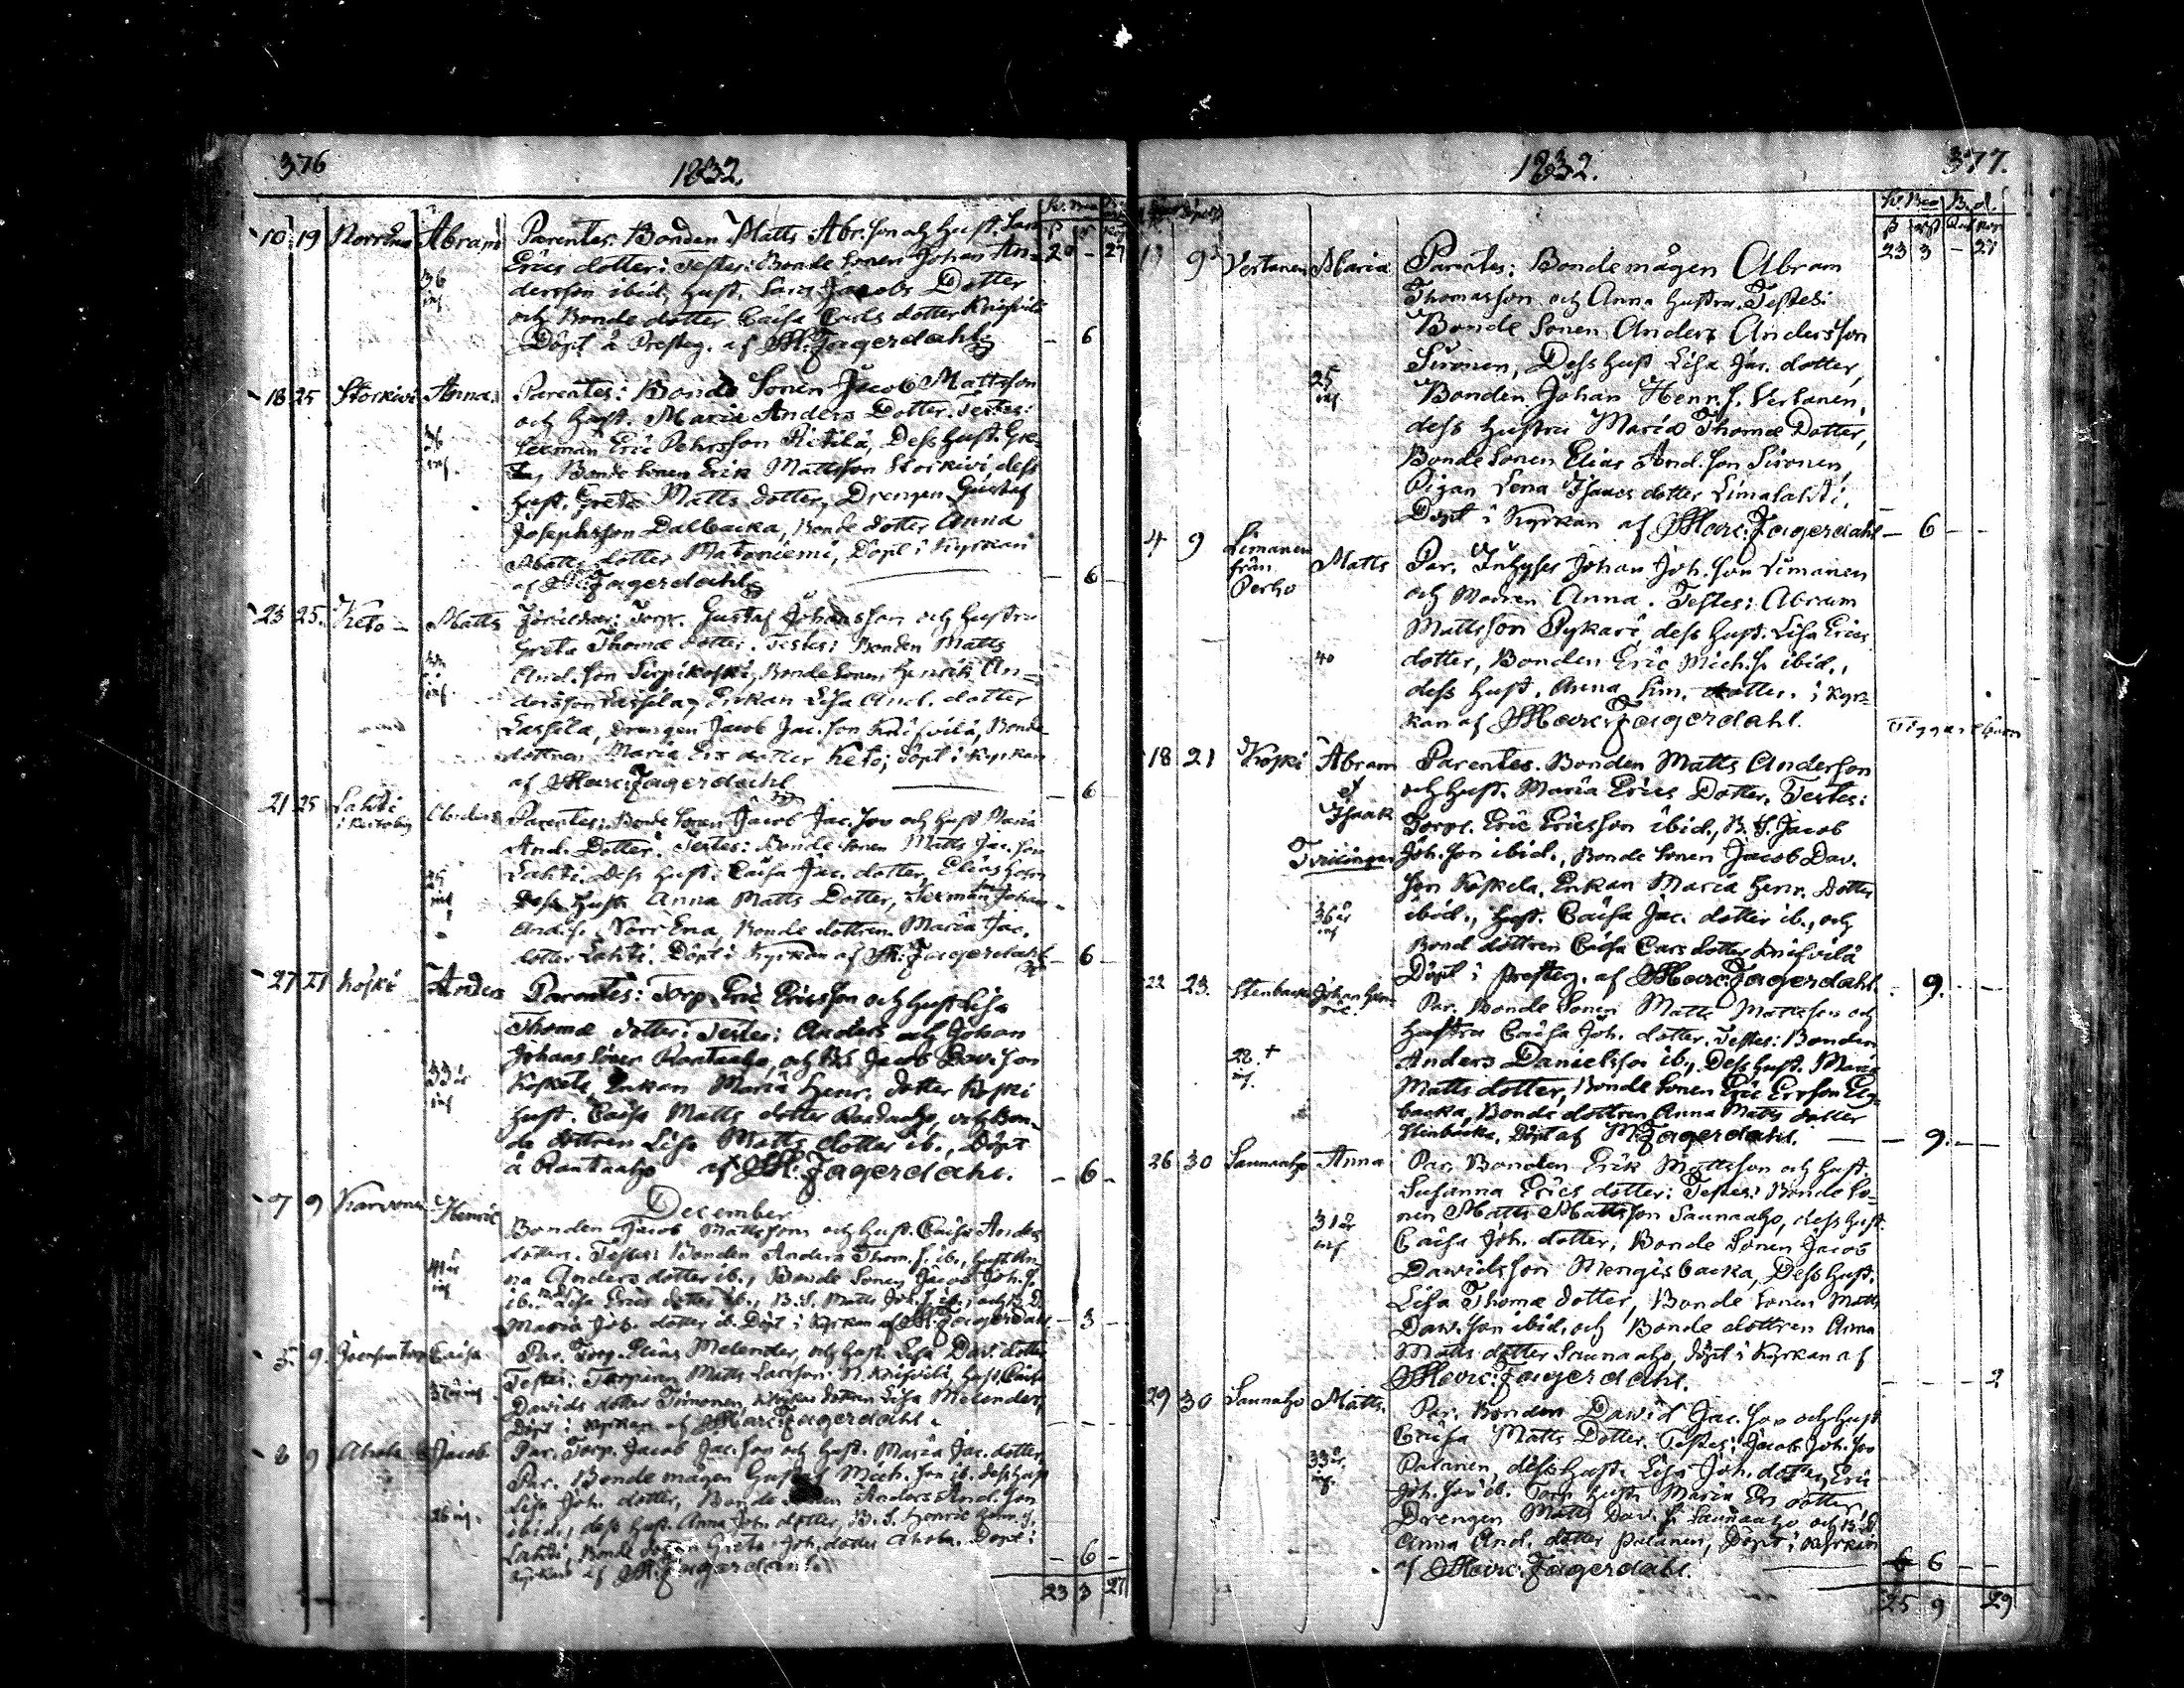 376
1832.
10 19 Norr Ena Abram Parentes: Bonden Matts Abr. son och hust. Lisa 20 - 27
36 Erics dotter: Testes: Bonde Sonen Johan An-
dersson ibid. hust. Caisa Jacobs Dotter
och Bonde dotter Caisa Carls dotter Knifvilä
Döpt å Presteg. af M. Fagerdahl - 6
18 25 Storkivi Anna. Parentes: Bonde Sonen Jacob Mattsson
och Hust. Maria Anders Dotter. Testes:
Eric Pehrsson Dess Hust. Gre-
ta, Bonde Sonen Erik Mattsson Storkivi, dess
hust. Greta Matts dotter, Drengen Gustaf
Josephsson Dalbacka, Bonde dotter Anna
Matts dotter Matoniemi, Döpt i Kyrkan
af M. Fagerdahl - 6 -
23 25. Keto - Matts Föräldrar: Torp. Gustaf Johansson och hustru
Greta Thomæ dotter. Testes: Bonden Matts
And. son Bonde Sonen Henrik An-
dersson Lassila, Enkan Lisa And. dotter
Lassila, Drengen Jacob Jac. son Knifvilä, Bonde
dottren Maria Ers dotter Keto; Döpt i Kyrkan
af Marc. Fagerdahl - 6 -
21 25 Lahti Anders Parentes: Bonde Sonen Jacob Jac. son och hust Maria
And. Dotter. Testes: Bonde Sonen Matts Jac. son
Lahti. Dess hust. Caisa Jac. dotter, Elias
Dess hust. Anna Matts Dotter, Johan
And. s. Norr Ena, Bonde dottren Maria Jac.
dotter Lahti. Döpt i Kyrkan af M. Fagerdahl - 6 -
27 27 Koski Anders Parentes: Torp. Eric Ericsson och hust Lisa
Thomæ dotter: Testes: Anders och Johan
Johans Söner Rantaaho, och BS. Jacob Dav. son
33 år Koskela, Enkan Maria Henr. dotter Koski
hust. Caisa Matts dotter och Bon-
de dottren Lisa Matts dotter ib., Döpt
å Rantaaho af M. Fagerdahl. - 6 -
December
7 9 Karvonen Henric Bonden Jacob Mattsson och hust. Caisa Anders
dotter. Testes: Bonden Anders Thom. s. ib., hust. An-
41 år na Anders dotter ib., Bonde Sonen Jacob Joh. s.
ib. Lisa Erics dotter ib., B.S. Matts Joh. s. ib., och B.D.
Maria Joh. dotter ib. Döpt i Kyrkan af M. Fagerdahl - 3 -
5. 9. Caisa Par. Torp. Elias Melender, och hust. Lisa Dav. dotter
Testes: Torparen Matts Larsson N. Knifvilä, hust. Caisa
37 år Davids dotter Timonen, dottren Lisa Melender,
Döpt i Kyrkan af Marc. Fagerdahl. - - -
8 9 Ahola Jacob Par. Torp. Jacob Jac. son och hust. Maria Jac. dotter,
Par. Bonde mågen Gustaf Mich. son ib. dess hust
Lisa Joh. dotter, Bonde Sonen Anders And. son
26 ibid., dess hust. Anna Joh. dotter, B.S. Henric Henr. s.
Lahti, Bonde dottren Greta Joh. dotter Ahola. Döpt i
Kyrkan af M. Fagerdahl. - 6 -
23 3 27
1832.
377.
23 3 - 27
9 Vertanen Maria Parentes: Bondemågen Abram
Thomasson och Anna hustru. Testes:
Bonde Sonen Anders Andersson
Sironen, Dess hust Lisa Jac. dotter,
25 Bonden Johan Henr. s. Vertanen,
dess hustru Maria Thomæ Dotter,
Bonde Sonen Elias And. son Sironen,
Pigan Lena Isaacs dotter Limalahti.
Döpt i Kyrkan af Marc. Fagerdahl - 6 -
4 9 Limanen Matts Par. Inhyses Johan Joh. son Limanen
från
Perho och Modren Anna. Testes: Abram
Mattsson Pykari, dess hust. Lisa Erics
40 dotter, Bonden Eric Mich. s. ibid.,
dess hust. Anna Sim. dotter. i Kyr-
kan af Marc. Fagerdahl. Tiggare barn
18 21 Koski Abram Parentes. Bonden Matts Andersson
et och hust. Maria Erics Dotter. Testes:
Isaak Torp. Eric Ericsson ibid., B.S. Jacob
Tvillingar Joh. son ibid., Bonde Sonen Jacob Dav.
son Koskela. Enkan Maria Henr. Dotter
36 år ibid., hust. Caisa Jac. dotter ib., och
Bond dottren Caisa Cars dotter Knifvilä
Döpt i Presteg. af Marc. Fagerdahl. - 9. -
22 23. Stenbacka Johan Hen-
ric. Par. Bonde Sonen Matts Mattsson och
hustru Caisa Joh. dotter. Testes: Bonden
22. + Anders Danielsson ib., Dess hust. Maria
Matts dotter, Bonde Sonen Eric Ersson
backa, Bonde dottren Anna Matts dotter
Stenbacka. Döpt af M. Fagerdahl. - 9. -
26 30 Saunaaho Anna Par. Bonden Erik Mattsson och hust.
Susanna Erics dotter: Testes: Bonde So-
nen Matts Mattsson Saunaaho, dess hust.
31 år Caisa Joh. dotter, Bonde Sonen Jacob
Davidsson Mengisbacka, Dess hust.
Lisa Thomæ dotter, Bonde Sonen Matts
Dav. son ibid. och Bonde dottren Anna
Matts dotter Saunaaho, Döpt i Kyrkan af
Marc. Fagerdahl. - - - 2
29 30 Saunaaho Matts. Par. Bonden David Jac. son och hust
Caisa Matts Dotter. Testes: Jacob Joh. son
33 år Palanen, dess hust. Lisa Joh. dotter, Eric
Joh. son ib. Torp. hust. Maria Ers dotter,
Drengen Matts Dav. s. Saunaaho och B.D
Anna And. dotter Palanen, Döpt i Kyrkan
af Marc. Fagerdahl. 6 - -
25 9 29